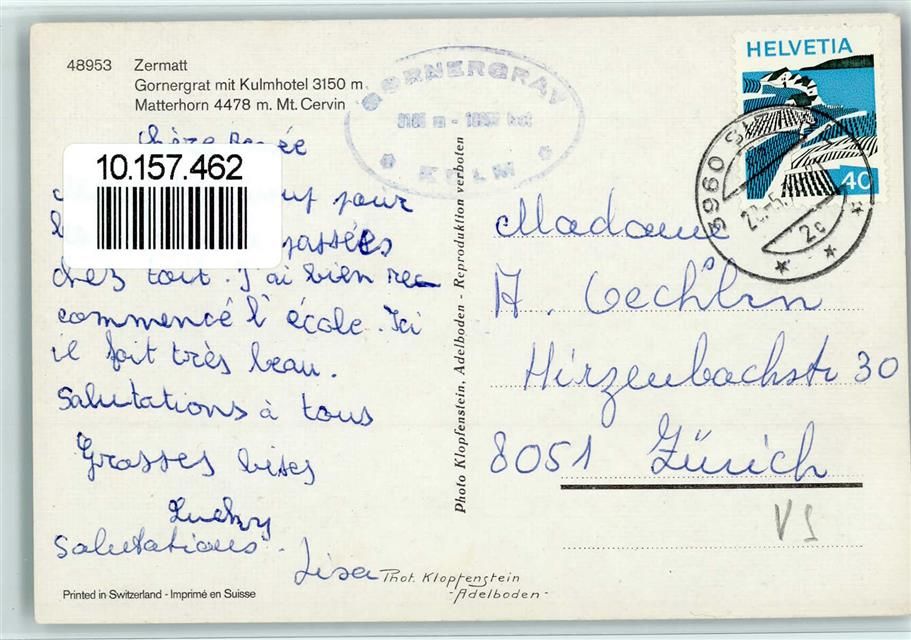 48953 Zermatt
Gornergrat mit Kulmhotel 3150 m
Matterhorn 4478 m. Mt. Cervin
GORNERGRAT
KULM
HELVETIA
40
3960 S
2c
Chère Renée
10.157.462
pour
passées
chez toit. J'ai bien re-
commencé l'école. Ici
il fait très beau.
Salutations à tous
Grosses bises
Salutations.
Lisa
Photo Klopfenstein, Adelboden - Reproduktion verboten
Madame
A. Oechlin
Hirzenbachstr 30
8051 Zürich
VS
Phot. Klopfenstein
- Adelboden -
Printed in Switzerland - Imprimé en Suisse